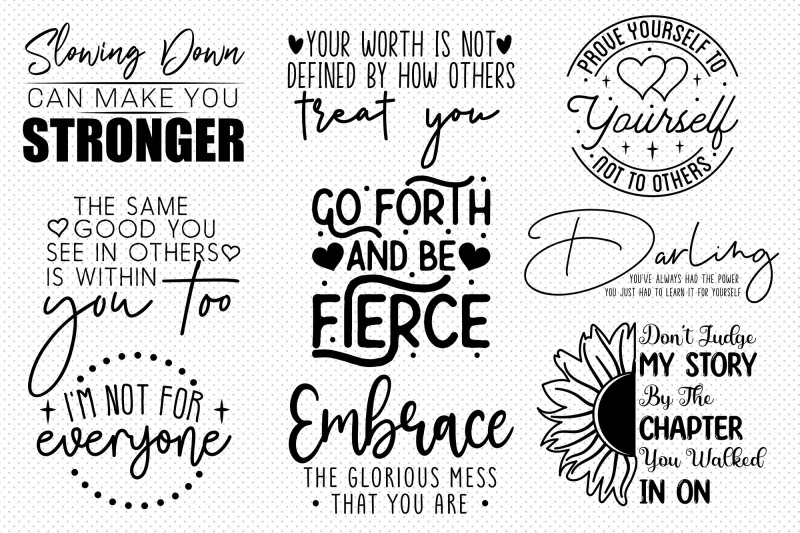 Slowing Down
CAN MAKE YOU
STRONGER
YOUR WORTH IS NOT
DEFINED BY HOW OTHERS
treat you
PROVE YOURSELF TO
Yourself
NOT TO OTHERS
THE SAME
GOOD YOU
SEE IN OTHERS
IS WITHIN
you too
GO FORTH
AND BE
FIERCE
Darling
YOU'VE ALWAYS HAD THE POWER
YOU JUST HAD TO LEARN IT FOR YOURSELF
I'M NOT FOR
everyone
Embrace
THE GLORIOUS MESS
• THAT YOU ARE •
Don't Judge
MY STORY
By The
CHAPTER
You Walked
IN ON